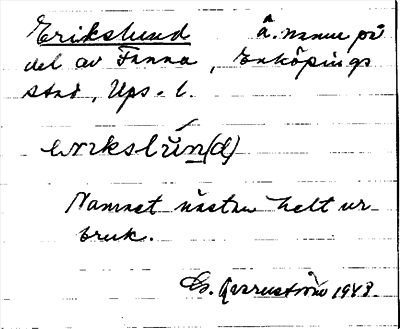 Erikslund å. namn på
del av Fanna, Enköpings
stad, Ups. l.
erikslŭn(d)
Namnet nästan helt ur
bruk.
G. Qvarnström 1948.